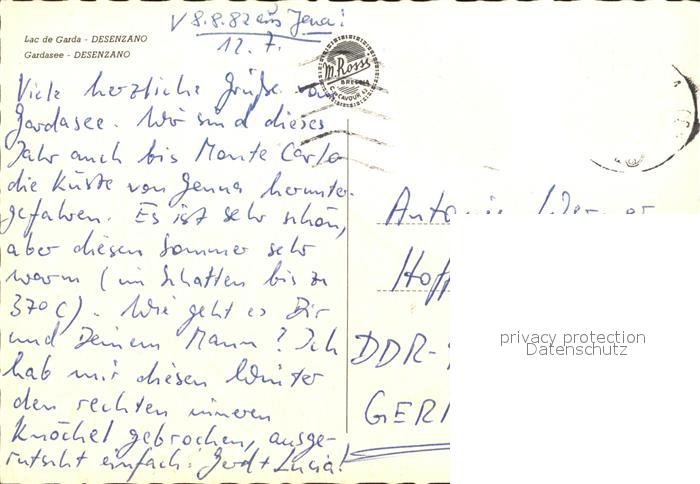 V 8.8.82 aus Jena!
12.7.
Lac de Garda - DESENZANO
Gardasee - DESENZANO
M. Rossi
BRESCIA
C. CAVOUR
Viele herzliche Grüße vom
Gardasee. Wir sind dieses
Jahr auch bis Monte Carlo
die Küste von Genua herunter-
gefahren. Es ist sehr schön,
aber diesen Sommer sehr
warm (im Schatten bis zu
37°C). Wie geht es Dir
und Deinem Mann? Ich
hab mir diesen Winter
den rechten inneren
Knöchel gebrochen, ausge-
rutscht einfach! Gerd + Lucia!
Hoff
DDR-
GERM
privacy protection
Datenschutz